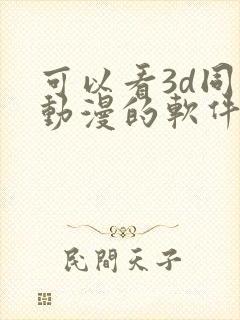 可以看3d同
動漫的軟件
民間天子